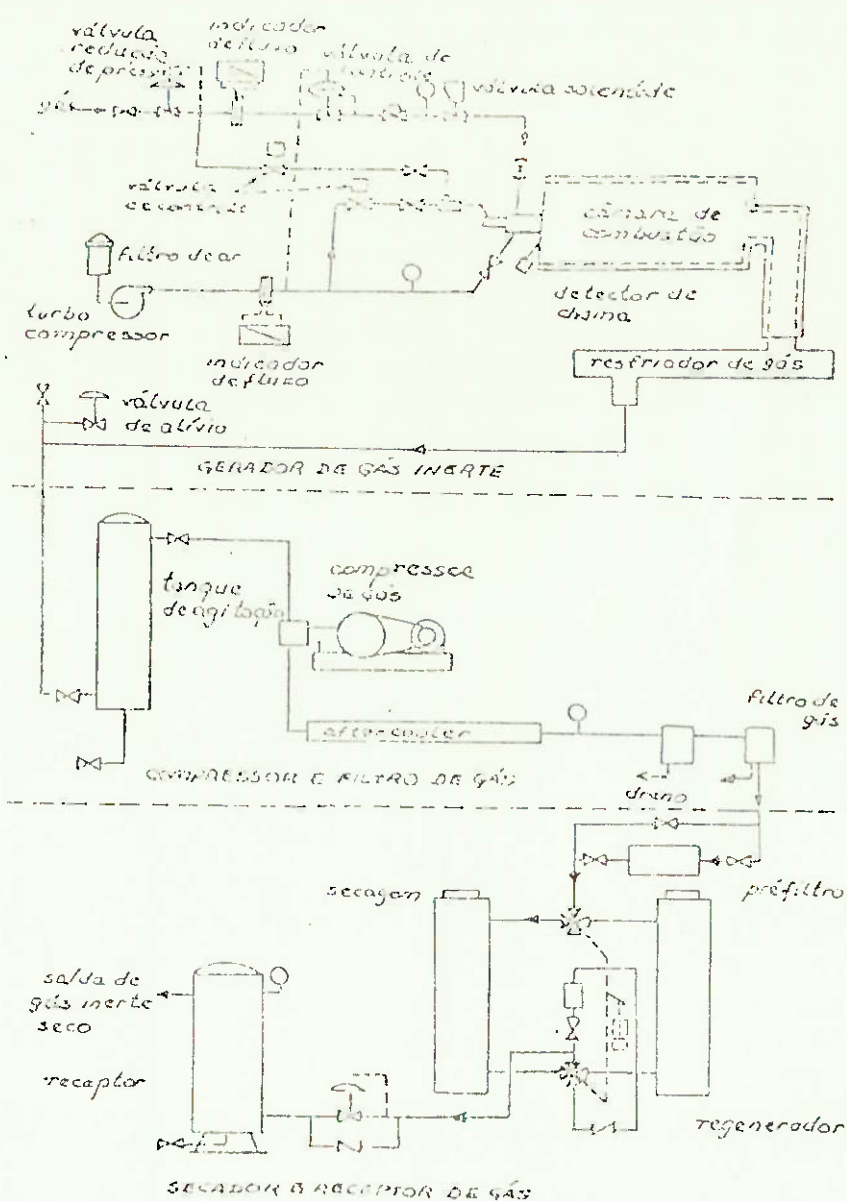 válvula
redução
de pressão
indicador
de fluxo
válvula de
controle
válvula solenóide
gás
válvula
de controle
câmara de
combustão
filtro de ar
detector de
chama
turbo
compressor
indicador
de fluxo
resfriador de gás
válvula
de alívio
GERADOR DE GÁS INERTE
tanque
de agitação
compressor
de gás
filtro de
gás
after-cooler
dreno
COMPRESSOR E FILTRO DE GÁS
secagem
préfiltro
saída de
gás inerte
seco
receptor
regenerador
SECADOR E RECEPTOR DE GÁS